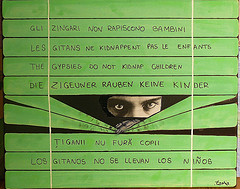 GLI ZINGARI NON RAPISCONO BAMBINI
LES GITANS NE KIDNAPPENT PAS LE ENFANTS
THE GYPSIES DO NOT KIDNAP CHILDREN
DIE ZIGEUNER RAUBEN KEINE KINDER
TIGANII NU FURĂ COPII
LOS GITANOS NO SE LLEVAN LOS NIÑOS